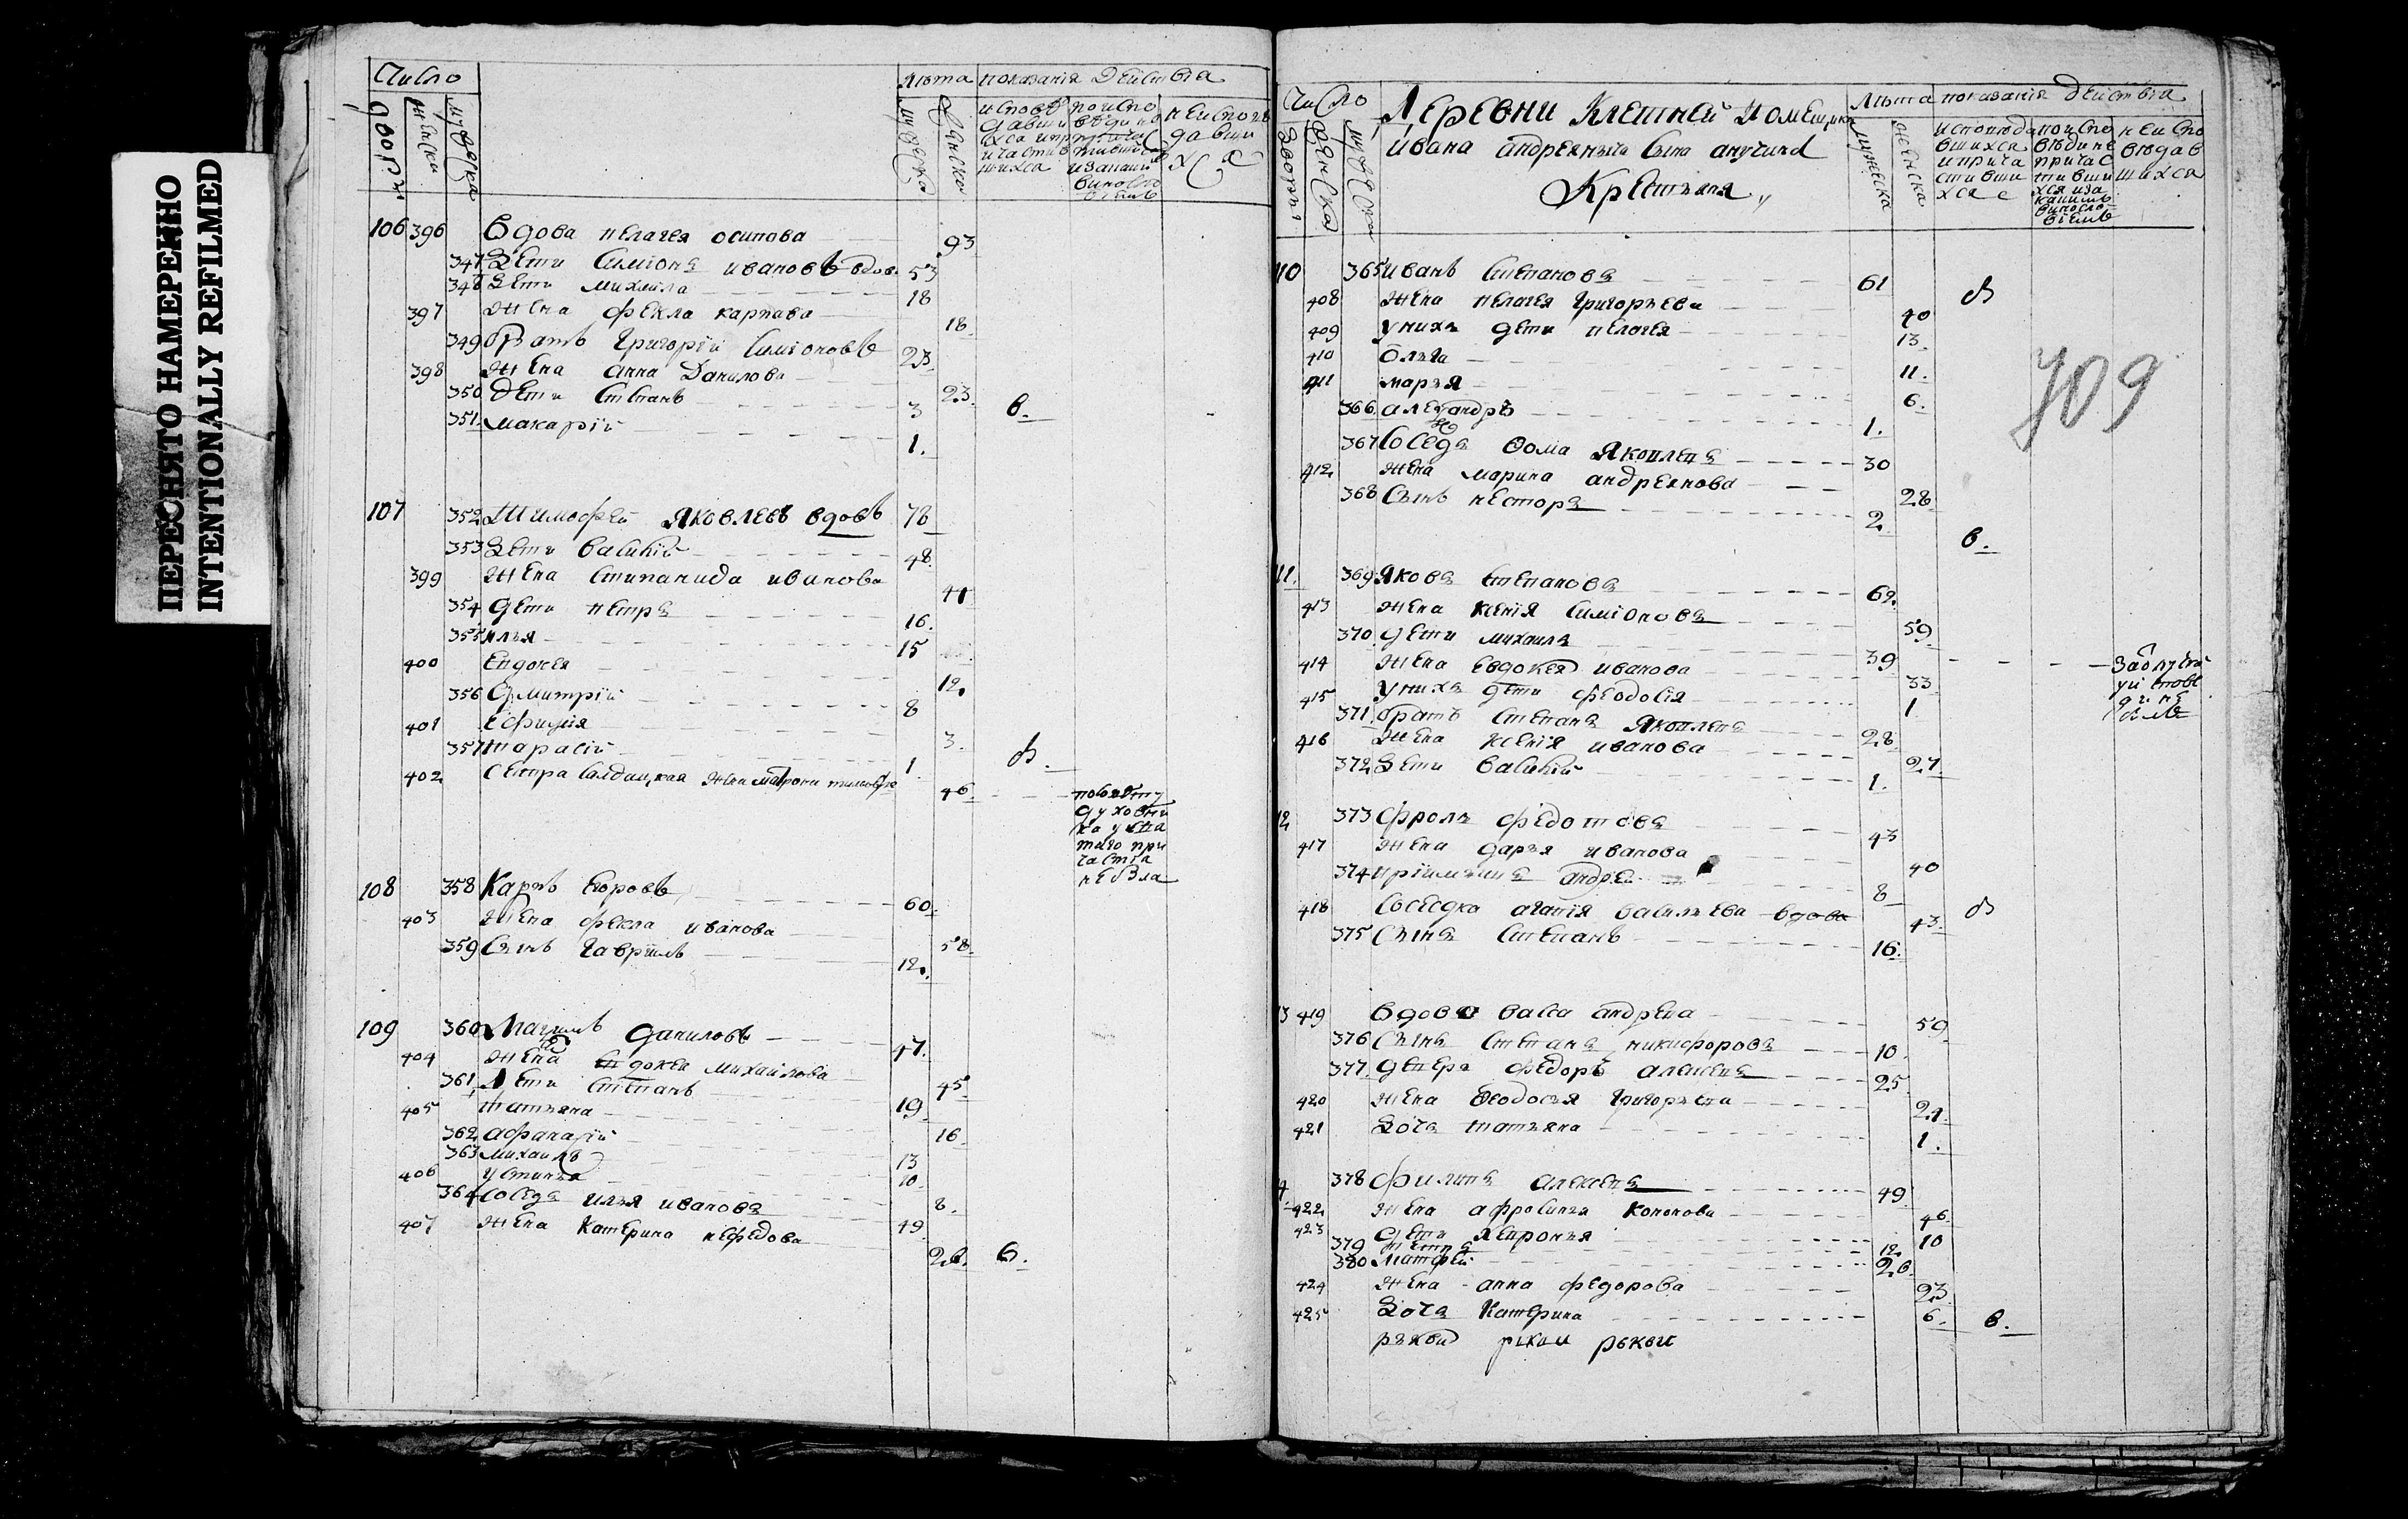 ПЕРЕСНЯТО НАМЕРЕННО
INTENTIONALLY REFILMED
Число
лѣта показанія действа
дворы
женска
мужеска
мужеска
женска
106 396 Вдова пелагея осипова 93
347 Дети Симіонъ ивановъ вдов. 53
348 Дети михаила 18
397 жена фекла карпава 18.
349 братъ Григорій Симіоновъ 23.
398 жена анна Данилова 23.
350 Дети Стпанъ 3 в.
351. макарій 1.
107 352 Тимофей Яковлевъ вдовъ 78
353 Дети василій 48.
399 жена Стипанида иванова 41
354 дети петръ 16.
355 илья 15
400 Евдокея 12.
356 дмитрій 8
401 Ефимія 3.
357 тарасій 1 в.
402 сестра Салдацкая жена матрона 46.
духовни
ка у
таго при
частія
108 358 Карпъ Егоровъ 60.
403 жена фекла иванова 58.
359 Сынъ Гавріилъ 12.
109 360 Даниловъ 47.
404 жена Евдокея михайлова 45.
361, Дети Степанъ 19.
405 татьяна 16.
362 афанасій 13
363 михаила 10
406 устинья 8.
364 соседъ илья ивановъ 49.
407 жена Катерина нефедова 26. в.
Число
Деревни Клетней помещика
ивана андреяныча сына анучина
Крестьяня
Лѣта показанія действія
дворы
женска
мужеска
мужеска
женска
110 365 иванъ Степановъ 61 в
408 жена пелагея Григорьева 40
409 у нихъ дети пелагея 13.
410 Ольга 11.
411 марья 6.
366. александръ 1.
367 Соседъ Фома Яковлевъ 30
412 жена марина андреянова 28.
368 Сынъ несторъ 2. в.
11. 369 Яковъ Степановъ 62.
413 жена Ксенія Симіонова 59
370 дети михаилъ 39
414 жена Евдокея иванова 33
415 у нихъ дети феодосія 1
371. братъ Степанъ Яковлевъ 28.
416 жена Ксенія иванова 27.
372 Дети Василій 1.
12 373 фролъ федотовъ 43
417 жена дарья иванова 40
374 пріимышъ андрей 8
418 соседка агапія васильева вдова 43. в
375 Сынъ Степанъ 16.
13 419 вдова васса андреева 59.
376 Сынъ Степанъ никифоровъ 10.
377. деверя федоръ алексеевъ 25
420 жена Феодосья Григорьева 21.
421 Дочь татьяна 1.
4 378 филипъ алексеевъ 49.
422 жена афросинья Кононова 46.
423 Дети хевронья 10
379 петръ 12.
380 матфей 26.
424 жена анна федорова 23
425 Дочь Катерина 6. в.
709